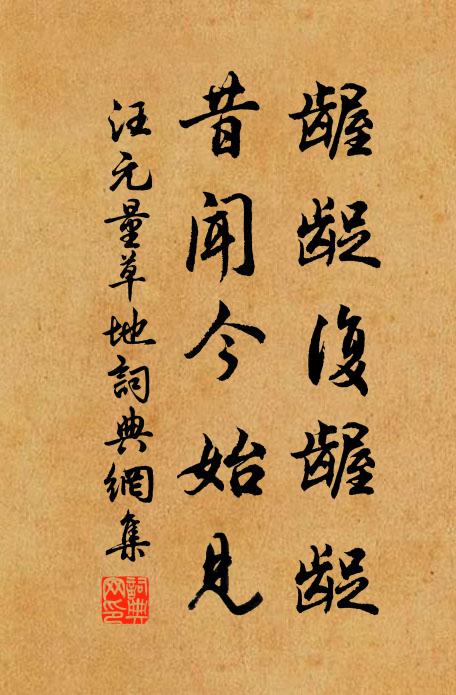 齷齪復齷齪
昔聞今始見
汪元量草地詞典網集
詞典網印